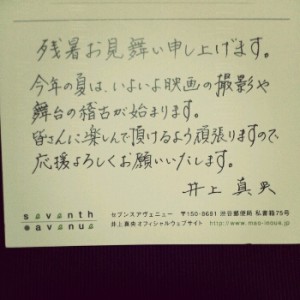 残暑お見舞い申し上げます。
今年の夏は、いよいよ映画の撮影や
舞台の稽古が始まります。
皆さんに楽しんで頂けるよう頑張りますので
応援よろしくお願いいたします。
井上 真央
seventh
avenue
セブンスアヴェニュー 〒150-9681 渋谷郵便局 私書箱75号
井上真央オフィシャルウェブサイト http://www.mao-inoue.jp